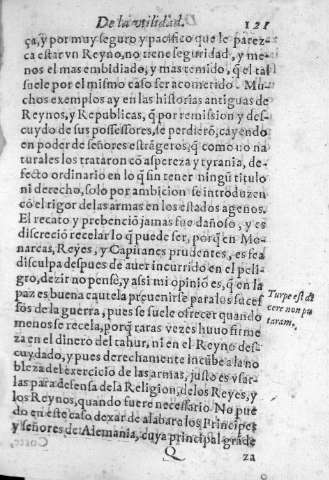 De la vtilidad. 121
ça, y por muy seguro y pacifico que le parez-
ca estar vn Reyno, no tiene seguridad, y me-
nos el mas embidiado, y mas temido, q̃ el tal
suele por el mismo caso ser acometido. Mu-
chos exemplos ay en las historias antiguas de
Reynos, y Republicas, q̃ por remission y des-
cuydo de sus possessores, se perdierõ, cayendo
en poder de señores estrãgeros, q̃ como no na
turales los trataron cõ aspereza y tyrania, de-
fecto ordinario en lo q̃ sin tener ningũ titulo
ni derecho, solo por ambicion se introduzen
cõ el rigor de las armas en los estados agenos.
El recato y prebenciõ jamas fue dañoso, y es
discreciõ recelar lo q̃ puede ser, porq̃ en Mo-
narcas, Reyes, y Capitanes prudentes, es fea
disculpa despues de auer incurrido en el peli-
gro, dezir no pense, y assi mi opinió es, q̃ en la
paz es buena cautela preuenirse para los suces
sos de la guerra, pues se suele ofrecer quando
menos se recela, porq̃ raras vezes huuo firme
za en el dinero del tahur, ni en el Reyno des-
cuydado, y pues derechamente incũbe a la no
bleza del exercicio de las armas, justo es vsar-
las para defensa de la Religion, de los Reyes, y
los Reynos, quando fuere necessario. No pue
do en este caso dexar de alabar a los Principes
y señores de Alemania, cuya principal grãde
Turpe est di
cere non pu
taram.
Q za